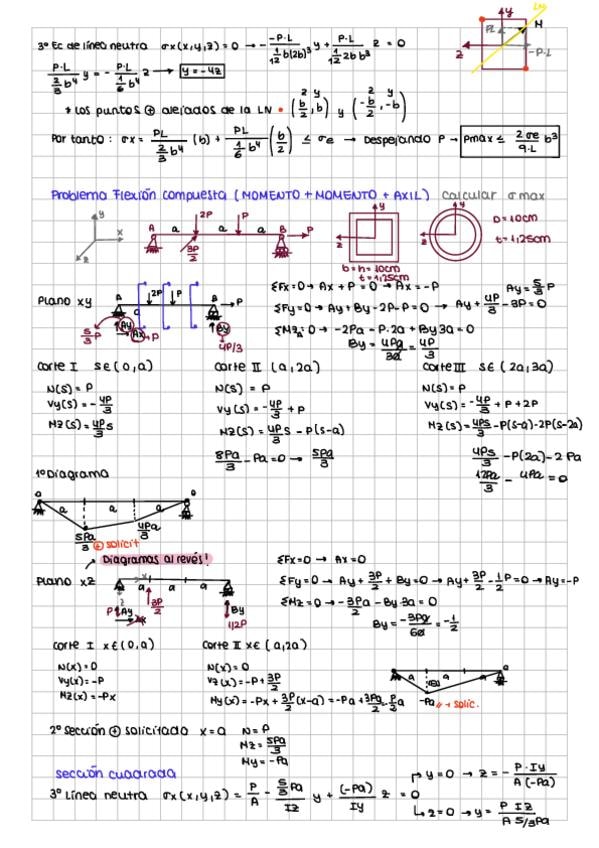 3º Ec de línea neutra σx(x,y,z)=0 → - -P·L / 1/12 b(2b)³ y + P·L / 1/12 2b b³ z = 0
P·L / 2/3 b⁴ y = - P·L / 1/6 b⁴ z → y=-4z
* Los puntos ⊕ alejados de la LN • (b/2, b) y (-b/2, -b)
z y z y
Por tanto: σx = PL / 2/3 b⁴ (b) + PL / 1/6 b⁴ (b/2) ≤ σe → Despejando P → Pmax ≤ 2σe / 9·L b³
y LN M PL z -P·L
Problema Flexión compuesta (MOMENTO + MOMENTO + AXIL) calcular σmax
y x z
A a 2P a P a B P
3P/2
y z
b=h=10cm
t=1,25cm
y z
D=10cm
t=1,25cm
Plano xy
A 2P P B P
5/3 P Ay Ax P By 4P/3
ΣFx=0 → Ax + P = 0 → Ax = -P Ay = 5/3 P
ΣFy=0 → Ay+By-2P-P=0 → Ay + 4P/3 - 3P=0
ΣMzA=0 → -2Pa - P·2a + By3a = 0
By = 4Pa/3a = 4P/3
Corte I s∈(0,a) Corte II (a,2a) Corte III s∈(2a,3a)
N(s)=P N(s)=P N(s)=P
Vy(s)=-4P/3 Vy(s)=-4P/3+P Vy(s)=-4P/3+P+2P
Mz(s)=4P/3 s Mz(s)=4P/3 s - P(s-a) Mz(s)=4Ps/3-P(s-a)-2P(s-2a)
8Pa/3 - Pa=0 → 5Pa/3 4Ps/3-P(2a)-2Pa
12Pa/3 - 4Pa=0
1º Diagrama
0 a a a 0
5Pa/3 4Pa/3
⊕ solicit
Diagramas al revés!
Plano xz
x a a a
z
P Ay Ax 3P/2 By 1/2P
ΣFx=0 → Ax=0
ΣFy=0 → Ay+3P/2+By=0 → Ay+3P/2-1/2P=0 → Ay=-P
ΣMz=0 → -3P/2 a - By·3a = 0
By = -3Pa/6a = -1/2
Corte I x∈(0,a) Corte II x∈(a,2a)
N(x)=0 N(x)=0
Vy(x)=-P Vz(x)=-P+3P/2
Mz(x)=-Px My(x)=-Px+3P/2(x-a)=-Pa+3Pa/2-P/2a
a a a 0
-Pa + solic.
2º Sección ⊕ solicitada x=a N=P
Mz=5Pa/3
My=-Pa
sección cuadrada
3º Línea neutra σx(x,y,z) = P/A - 5/3Pa / Iz y + (-Pa)/Iy z = 0
y=0 → z=- P·Iy / A(-Pa)
z=0 → y= P Iz / A 5/3Pa